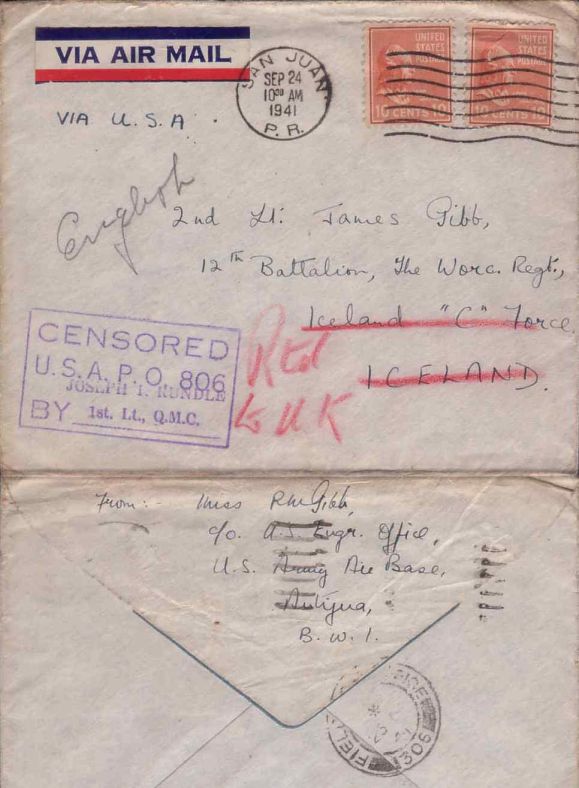 VIA AIR MAIL
SAN JUAN
SEP 24
10 30 AM
1941
P. R.
UNITED
STATES
POSTAGE
10 CENTS 10
UNITED
STATES
POSTAGE
10 CENTS 10
VIA U.S.A.
English
2nd Lt. James Gibb,
12th Battalion, The Worc. Regt.,
Iceland "C" Force
ICELAND.
Rtd
to UK
CENSORED
U.S.A.P.O. 806
JOSEPH T. RUNDLE
BY 1st. Lt., Q.M.C.
From:- Miss RM Gibb,
c/o. U.S. Engr. Office,
U.S. Army Air Base,
Antigua,
B.W.I.
FIELD OFFICE
306